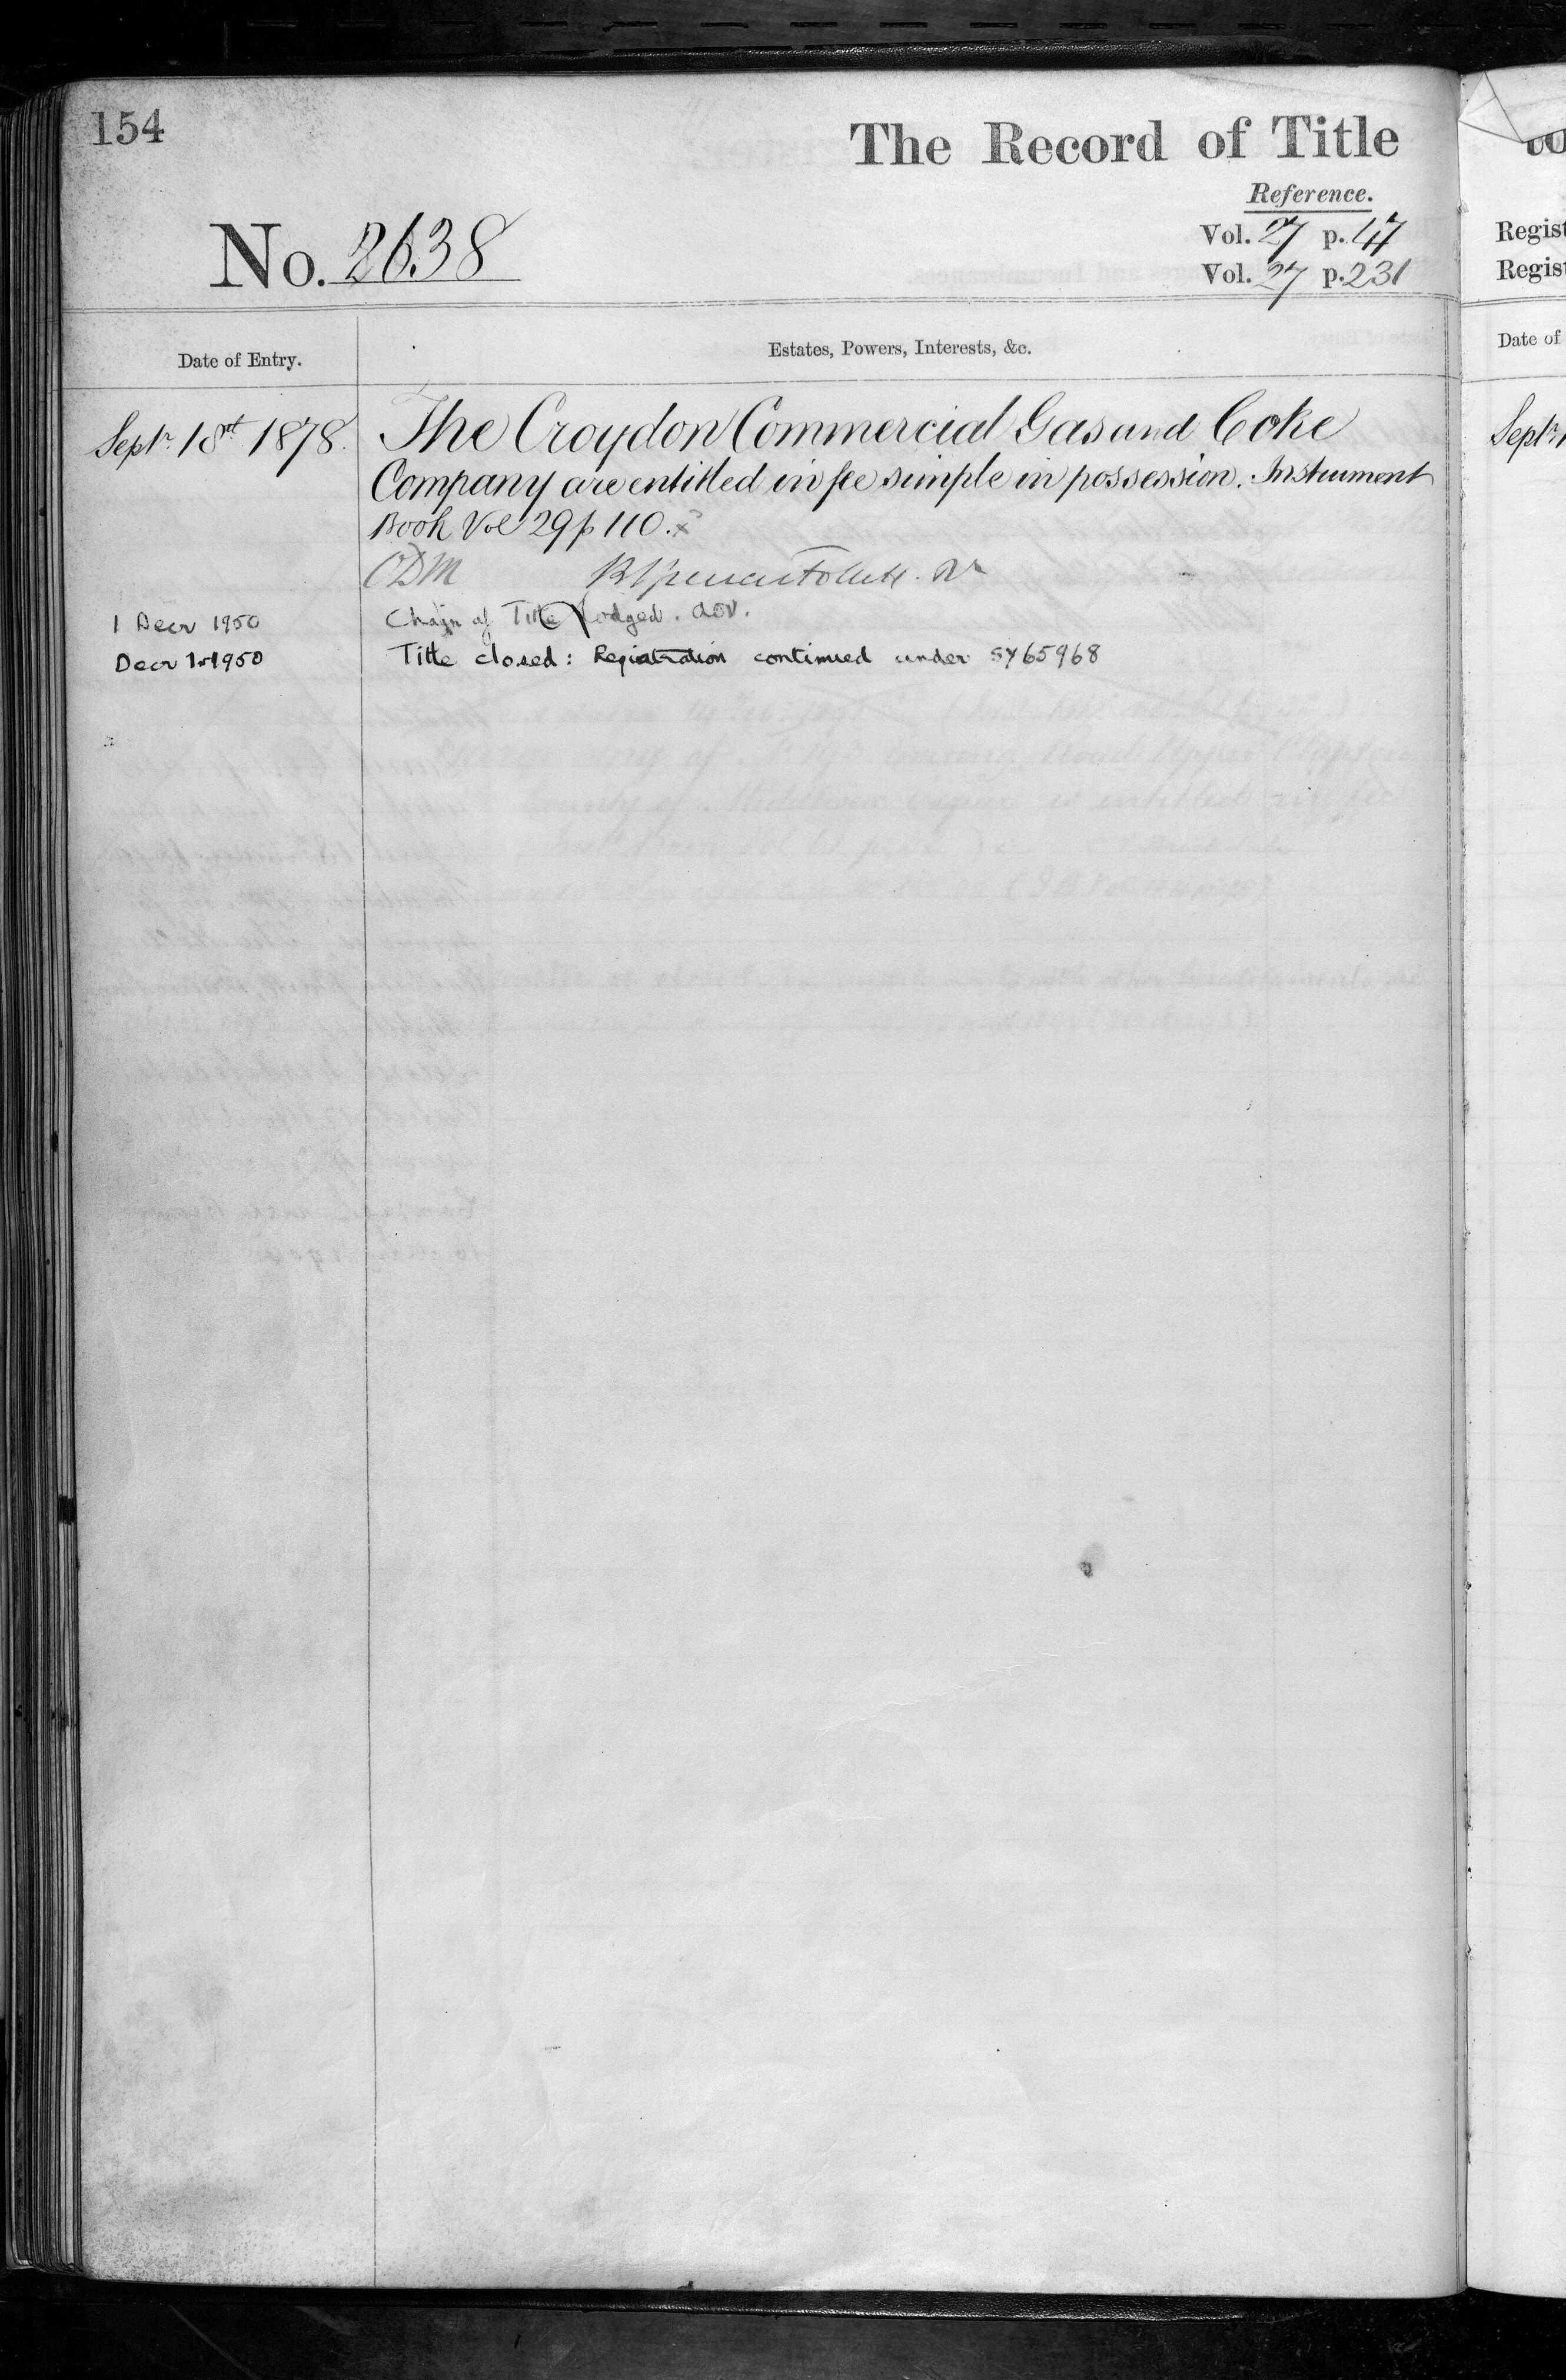 154
The Record of Title
Reference.
No. 2638
Vol. 27 p. 147
Vol. 27 p. 231
Regist
Regist
Date of Entry.
Estates, Powers, Interests, &c.
Date of
Septr. 18th 1878.
The Croydon Commercial Gas and Coke
Company are entitled in fee simple in possession. Instrument
Book Vol 29 p 110.
Septr
CDM
1 Decr 1950
Chain of Title lodged.
Decr 1st 1950
Title closed: Registration continued under SY65968